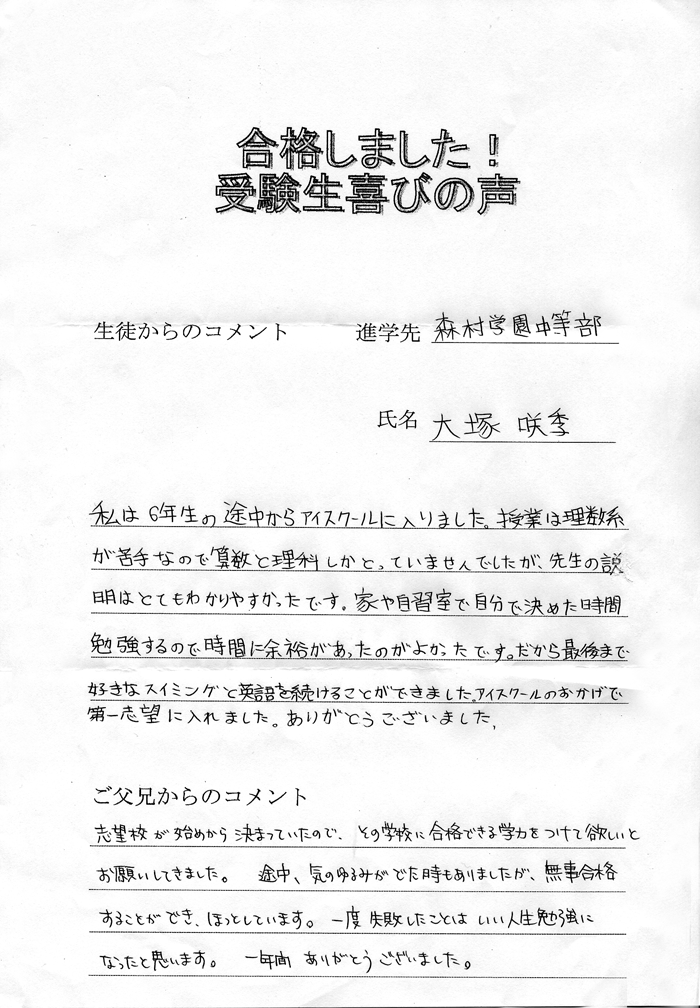 合格しました！
受験生喜びの声
生徒からのコメント 進学先 森村学園中等部
氏名 大塚 咲季
私は6年生の途中からアイスクールに入りました。授業は理数系
が苦手なので算数と理科しかとっていませんでしたが、先生の説
明はとてもわかりやすかったです。家や自習室で自分で決めた時間
勉強するので時間に余裕があったのがよかったです。だから最後まで
好きなスイミングと英語を続けることができました。アイスクールのおかげで
第一志望に入れました。ありがとうございました。
ご父兄からのコメント
志望校が始めから決まっていたので、その学校に合格できる学力をつけて欲しいと
お願いしてきました。 途中、気のゆるみがでた時もありましたが、無事合格
することができ、ほっとしています。一度失敗したことはいい人生勉強に
なったと思います。 一年間ありがとうございました。